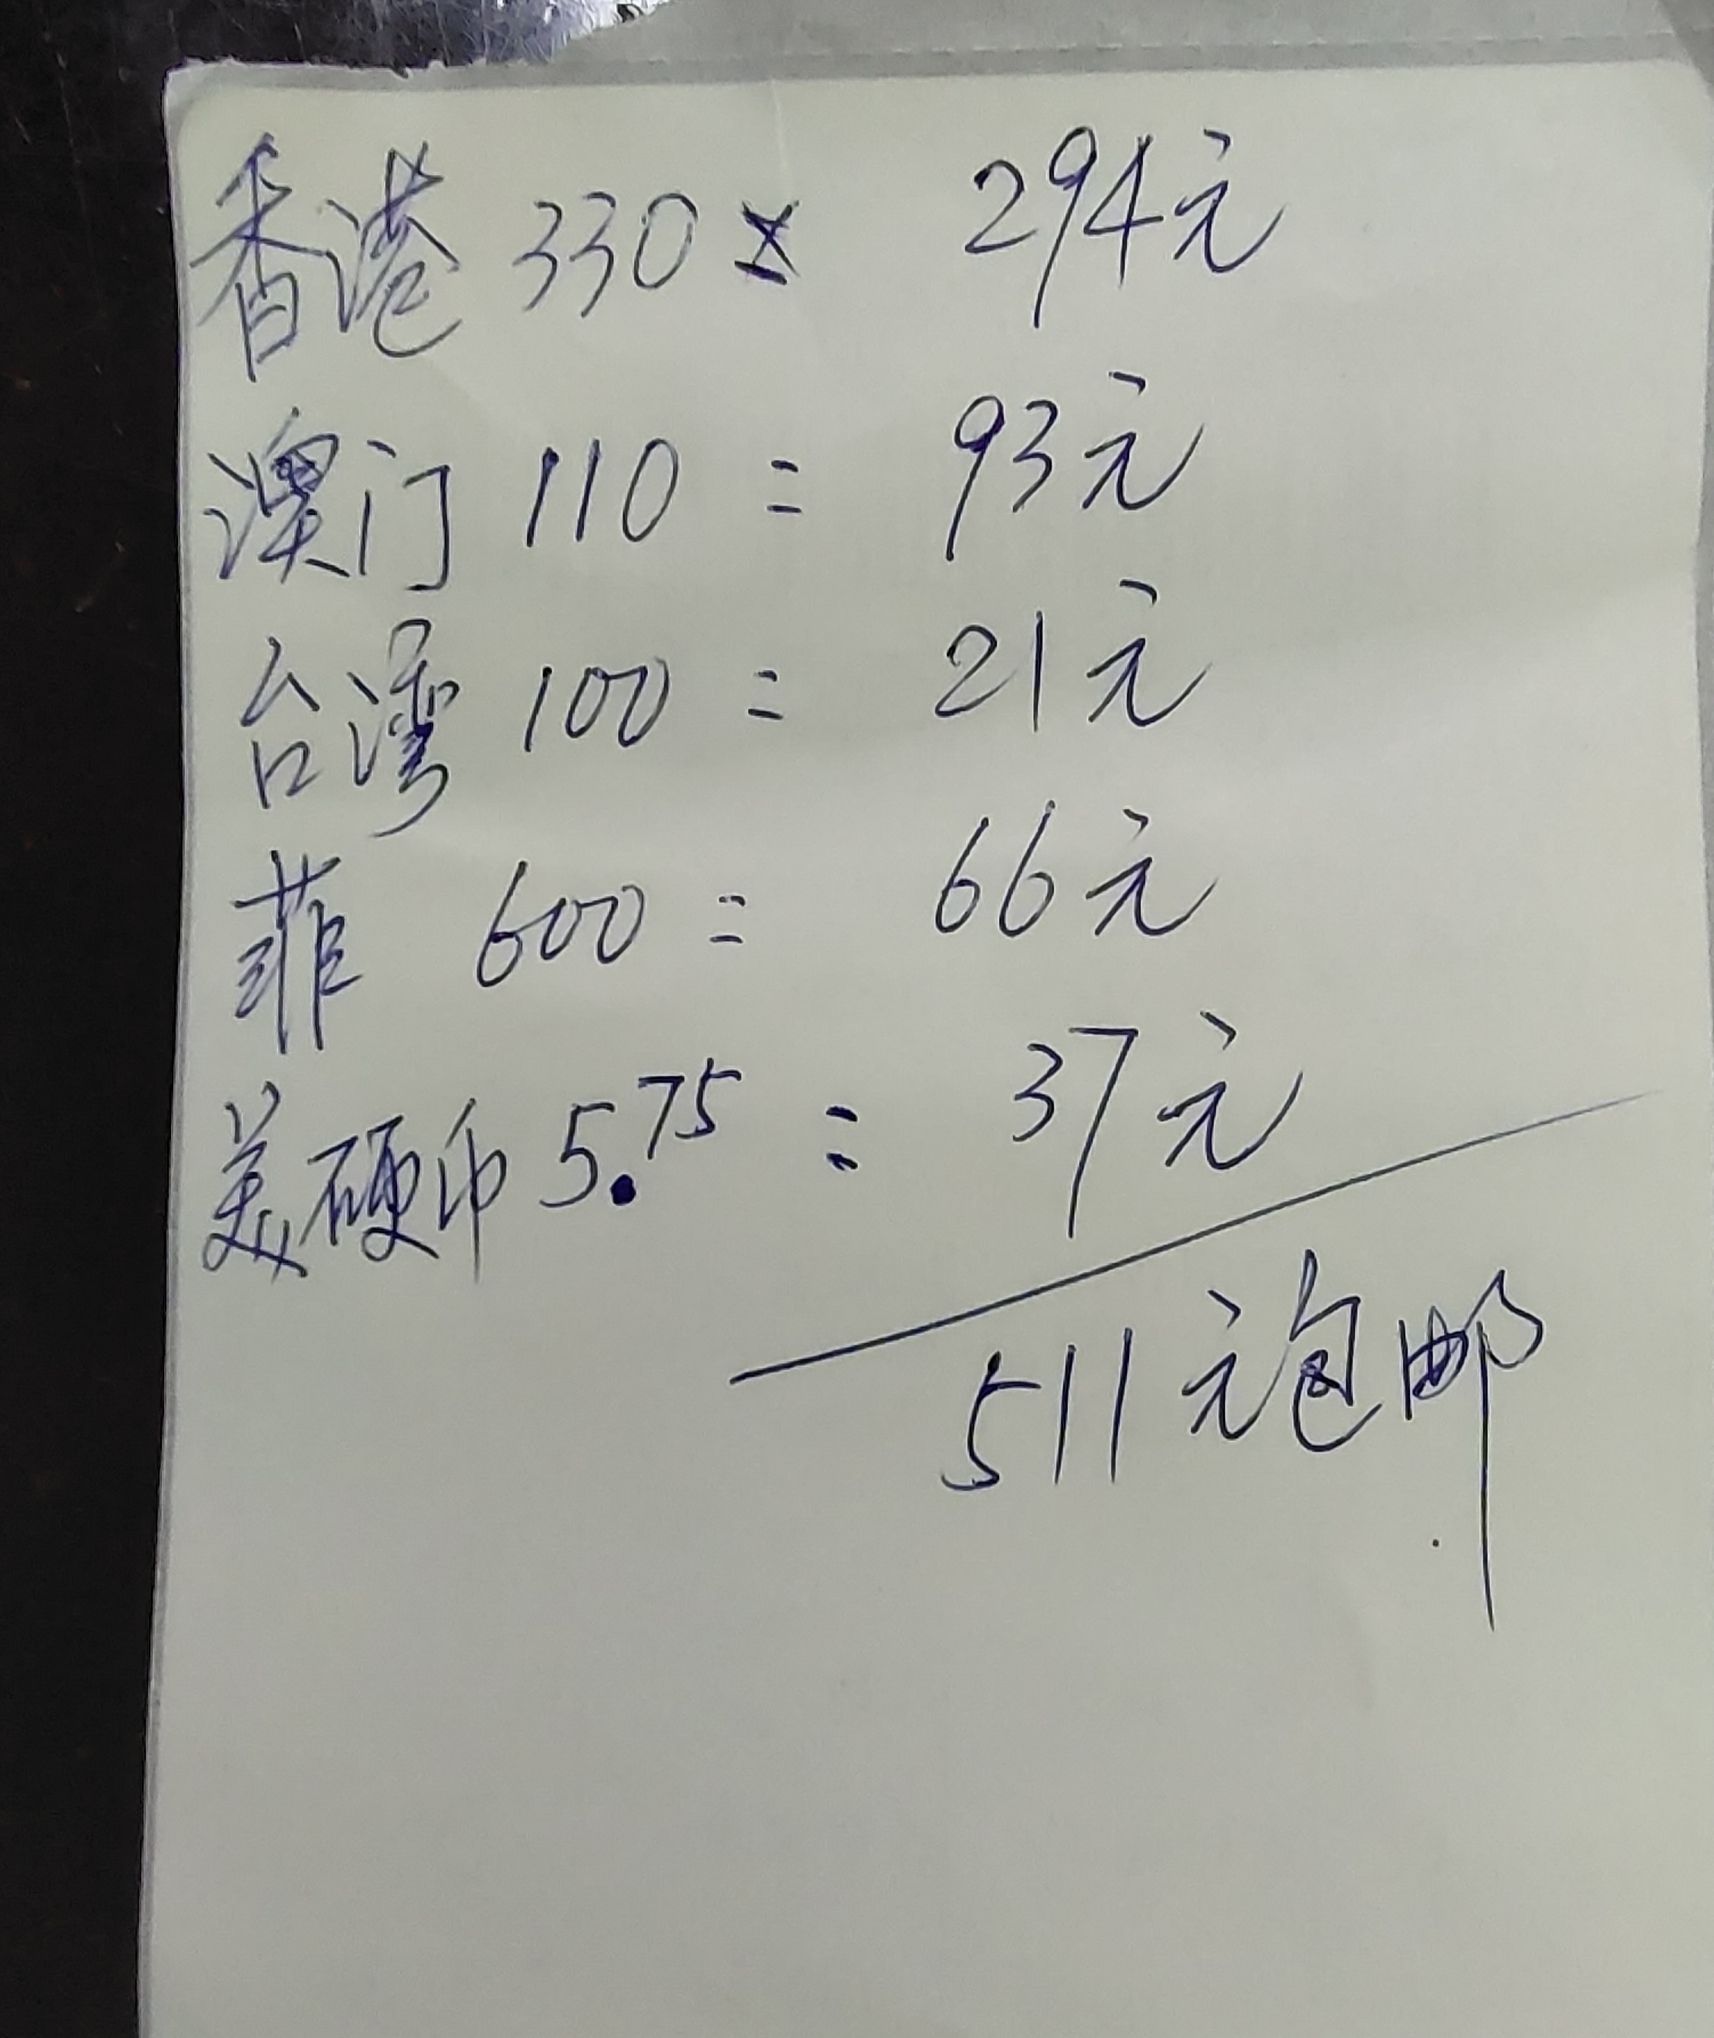 香港 330 × 294元
澳门 110 = 93元
台湾 100 = 21元
菲 600 = 66元
美硬币 5.75 = 37元
511元包邮